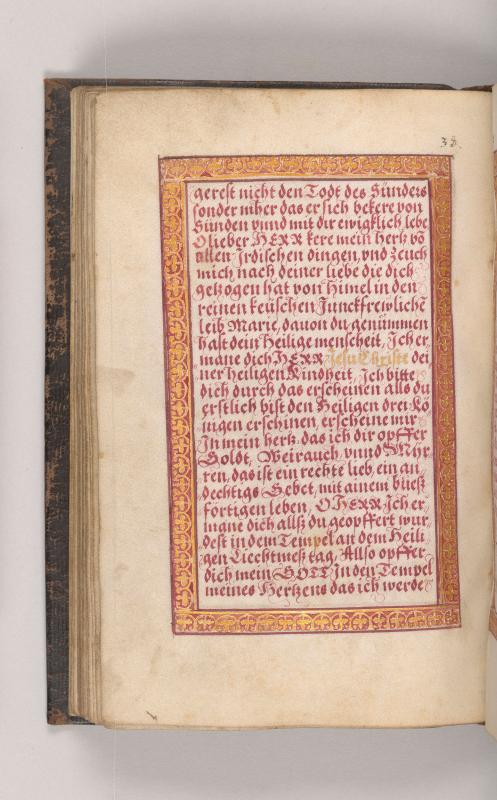 38.
gerest nicht den Todt des Sünders
sonder mher das er sich bekere von
Sünden vnnd mit dir ewigklich lebe
O lieber HERR kere mein hertz vō
allen Irdischen dingen, vnd zeuch
mich nach deiner liebe die dich
getzogen hat von Himel in den
reinen keüschen Junckfrewlichē
leib Marie, dauon du genummen
hast dein Heilige menscheit, Ich er
mane dich HERR Jesu Christe dei
ner heiligen Kindheit, Ich bitte
dich durch das erscheinen alls du
erstlich bist den Heiligen drei Kö
nigen erschinen, erscheine mir
In mein hertz, das ich dir opffer
Goldt, Weirauch, vnnd Myr
ren, das ist ein rechte lieb, ein an
dechtigs Gebet, mit ainem bueß
förtigen leben, O HERR Ich er
mane dich allß du geopffert wur
dest in dem Tempel an dem Heili
gen Liechtmeß tag, Allso opffer
dich mein GOTT In den Tempel
meines Hertzens das ich werde